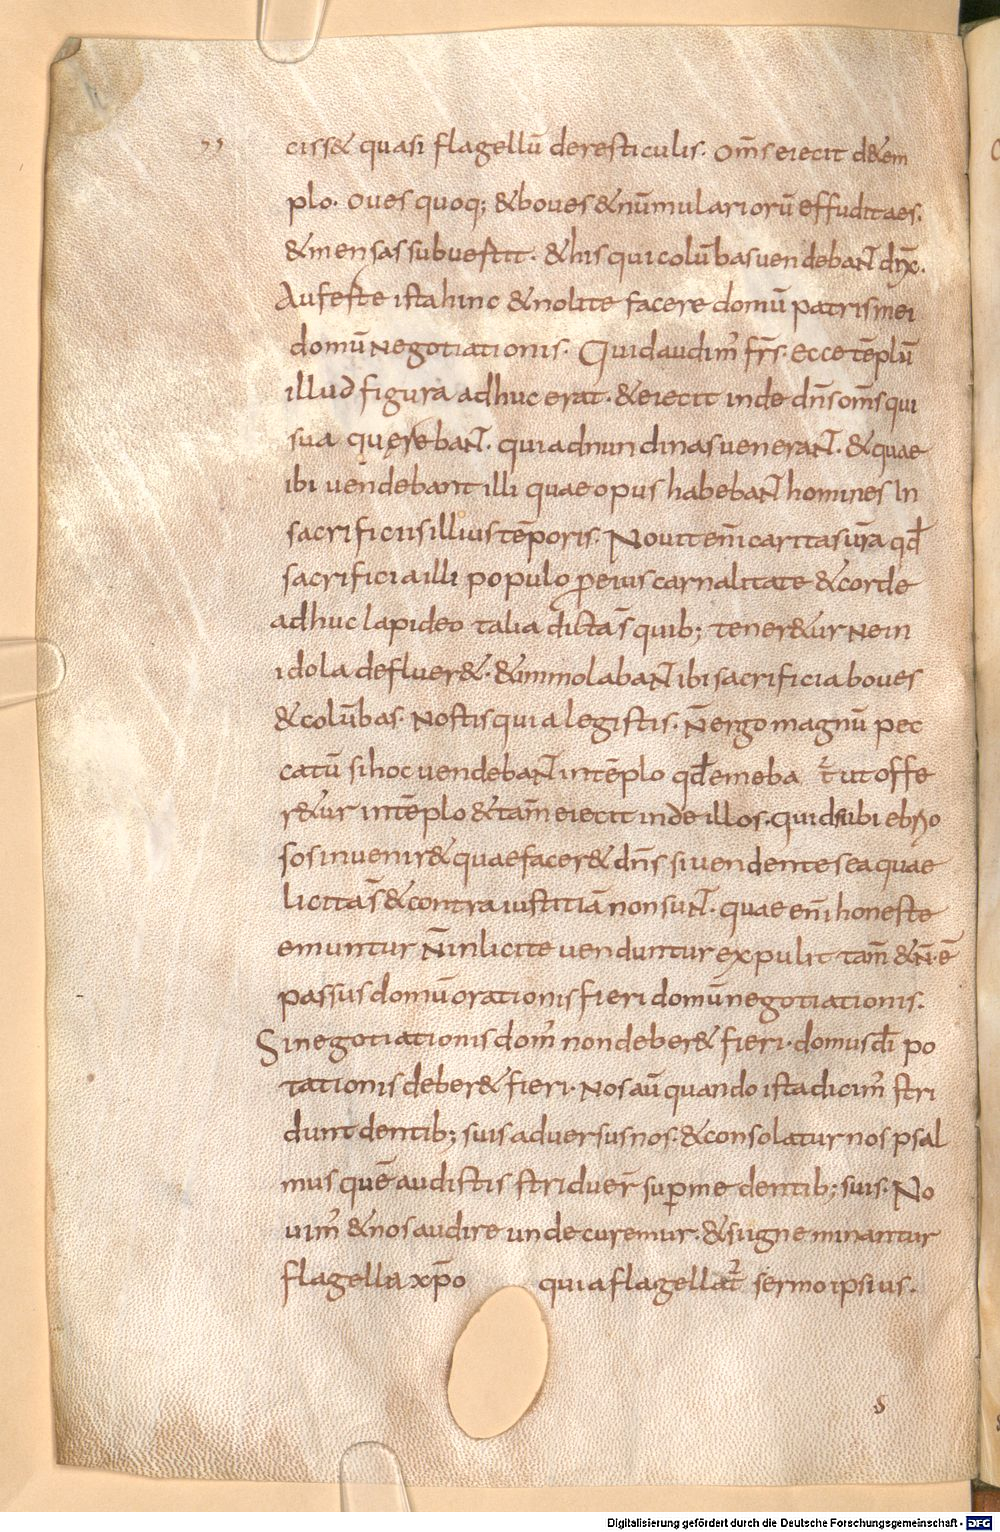 ciss& quasi flagellū deresticulis. Om̄s eiecit d&em
plo. Oves quoq; & boves & nūmulariorū effudit aes.
& mensas subvertit. & his qui colūbas vendebant dix̄.
Auferte ista hinc & nolite facere domū patris mei
domū negotiationis. Quid audim' fr̄s. Ecce tēplū
illud figura adhuc erat. & eiecit inde dn̄s om̄s qui
sua quęrebant. qui ad nundinas venerant. & quae
ibi vendebant illi quae opus habebant homines In
sacrificiis illius tēporis. Novit eni̅ caritas ur̄a qd̄
sacrificia illi populo p̱ eius carnalitate & corde
adhuc lapideo talia dicta s̄ quib; tener&ur Ne in
idola defluer&. & immolabant ibi sacrificia boves
& colūbas. Nostis quia legistis. N̄ ergo magnū pec
catū si hoc vendebant in tēplo qd̄ emeba t̄ ut offe
r&ur in tēplo & tam̄ eiecit inde illos. quid si ibi ebrio
sos invenir& quae facer& dn̄s si vendentes ea quae
licita s̄ & contra iustitiā non sunt. quae eni̅ honeste
emuntur n̄ inlicite venduntur expulit tam̄ & n̄ ē
passus domū orationis fieri domū negotiationis.
Si negotiationis dom' non deber& fieri. domus dī po
tationis deber& fieri. Nos aū quando ista dicim' stri
dunt dentib; suis adversus nos. & consolatur nos psal
mus quē audistis striduer̄ sup̱ me dentib; suis. No
vim' & nos audire unde curemur. & si igne minantur
flagella xp̄o quia flagellat' sermo ipsius.
s
Digitalisierung gefördert durch die Deutsche Forschungsgemeinschaft - DFG